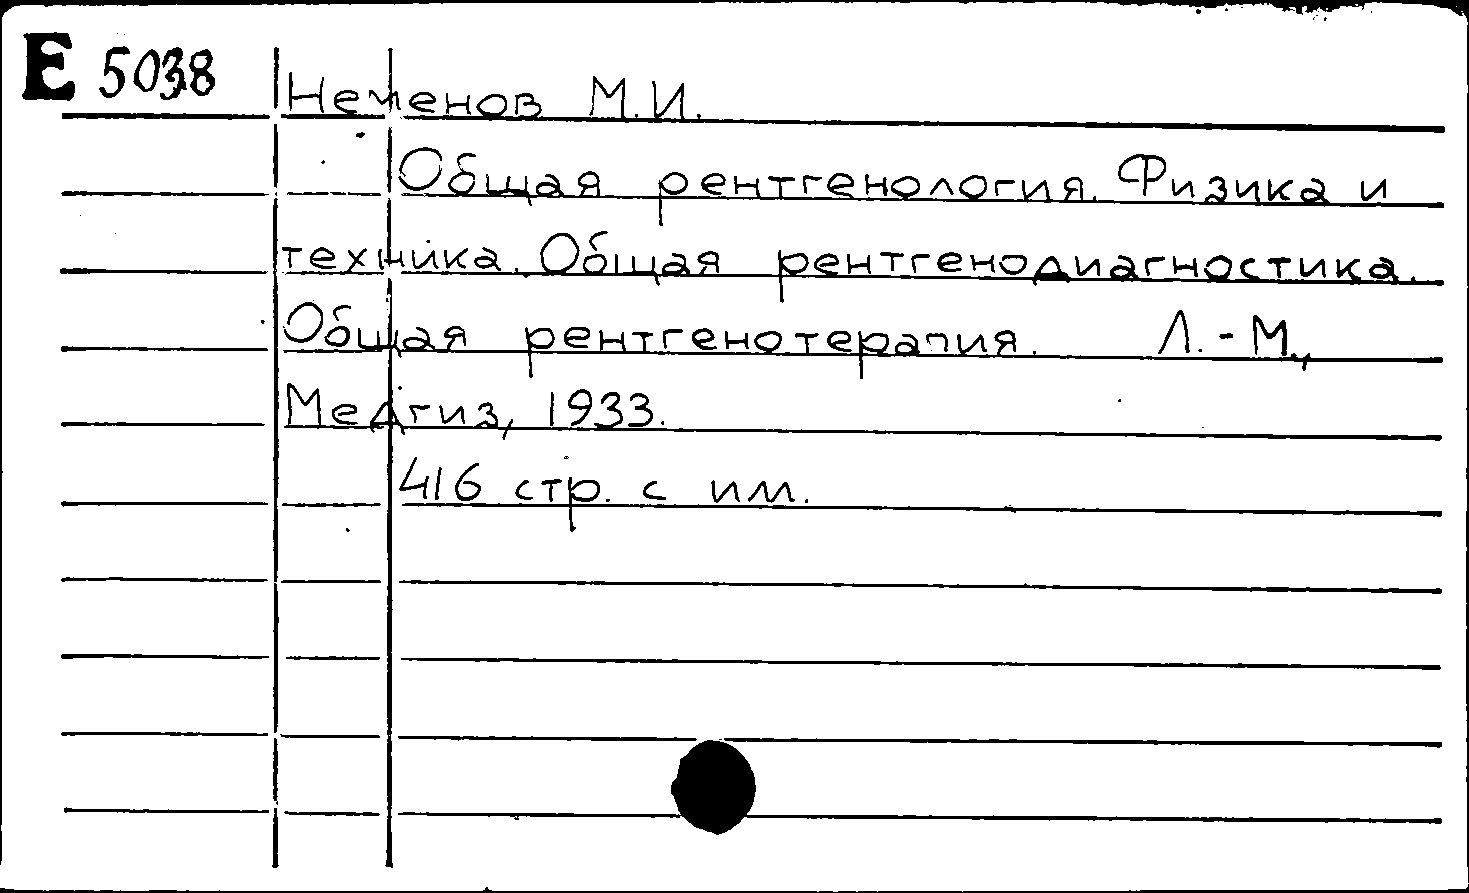 Е 5038
Неменов М.И.
Общая рентгенология. Физика и
техника. Общая рентгенодиагностика.
Общая рентгенотерапия. Л.-М.,
Медгиз, 1933.
416 стр. с илл.